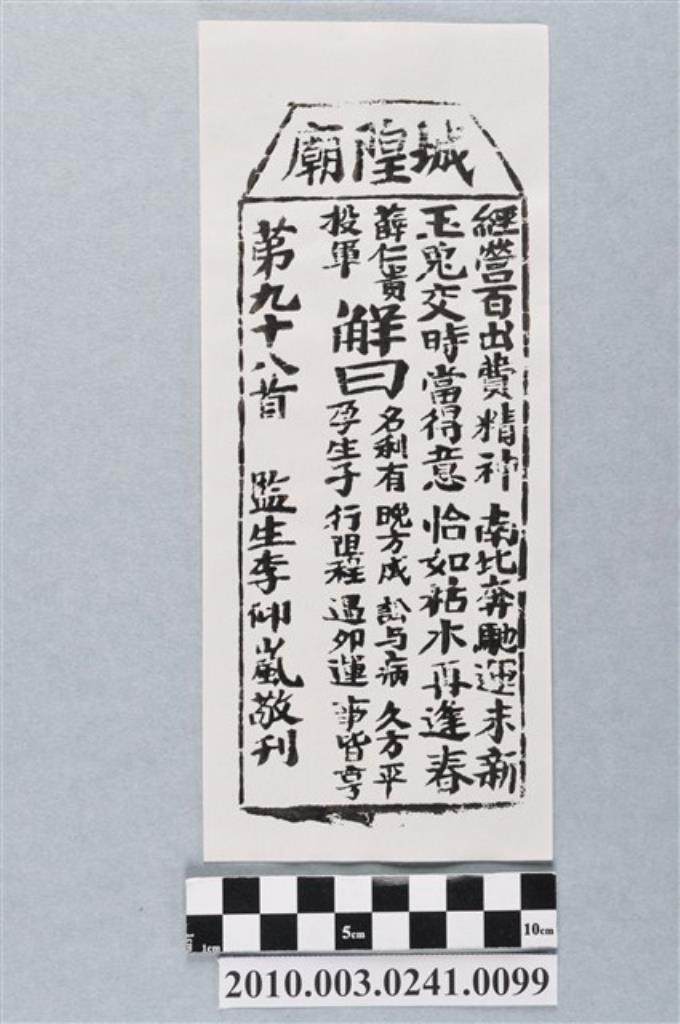 城隍廟
經營百出費精神 南北奔馳運未新
玉兔交時當得意 恰如枯木再逢春
薛仁貴
投軍
解曰
名利有 晚方成 訟与病 久方平
孕生子 行阻程 遇卯運 事皆亨
第九十八首 監生李仰嵐敬刊
1cm
5cm
10cm
2010.003.0241.0099